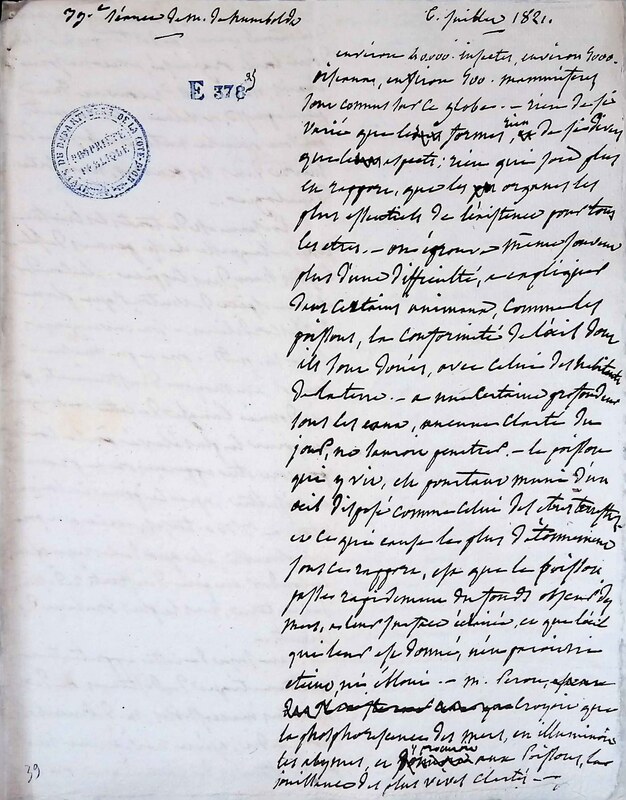 39.e Séance de M. de humboldt
6. juillet 1821.
E 378 25
ARCHIVES DU DÉPARTEMENT DE LA CÔTE-D'OR
PROPRIÉTÉ PUBLIQUE
environ 40.000 insectes, environ 5000
oiseaux, environ 500. mammifères
sont connus sur ce globe. — rien de si
varié que leurs formes, rien de si divers
que leurs aspects; rien qui soit plus
en rapport, que les organes les
plus essentiels de l'existence pour tous
les etres. — on éprouve même souvent
plus d'une difficulté, a expliquer
dans certains animaux, comme les
poissons, la conformité de l'œil dont
ils sont doués, avec celui des habitants
de la terre. — a une certaine profondeur
sous les eaux, aucune clarté du
jour, ne sauroit penetrer. — le poisson
qui y vit, est pourtant muni d'un
œil disposé comme celui des etres terrestres
et ce que cause le plus d'étonnement
sous ce rapport, est que le poisson
passe rapidement du fonds obscur des
mers, a leur surface éclairée, et que l'œil
qui leur est donné, n'en paroisse
éteint, ni ébloui. — m. Peron,
croyoit que
la phosphorescence des mers, en illuminoit
les abymes, et y procuroit aux Poissons, la
jouissance des plus vives clartés —
39